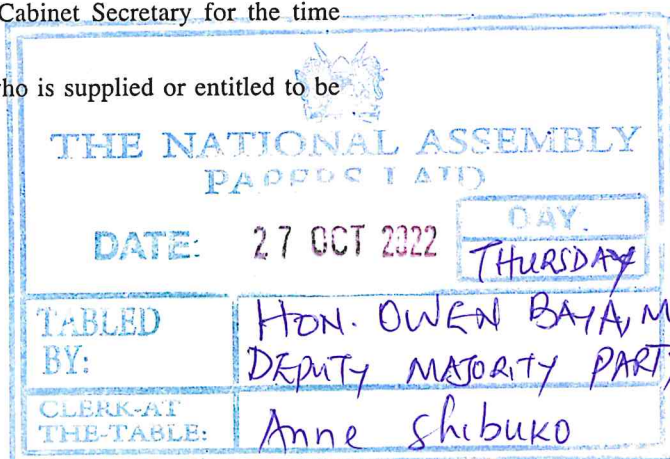 Cabinet Secretary for the time
who is supplied or entitled to be
THE NATIONAL ASSEMBLY
PAPERS LAID
DATE: 27 OCT 2022
DAY.
THURSDAY
TABLED BY:
HON. OWEN BAYA, M
DEPUTY MAJORITY PARTY
CLERK-AT THE-TABLE:
Anne Shibuko